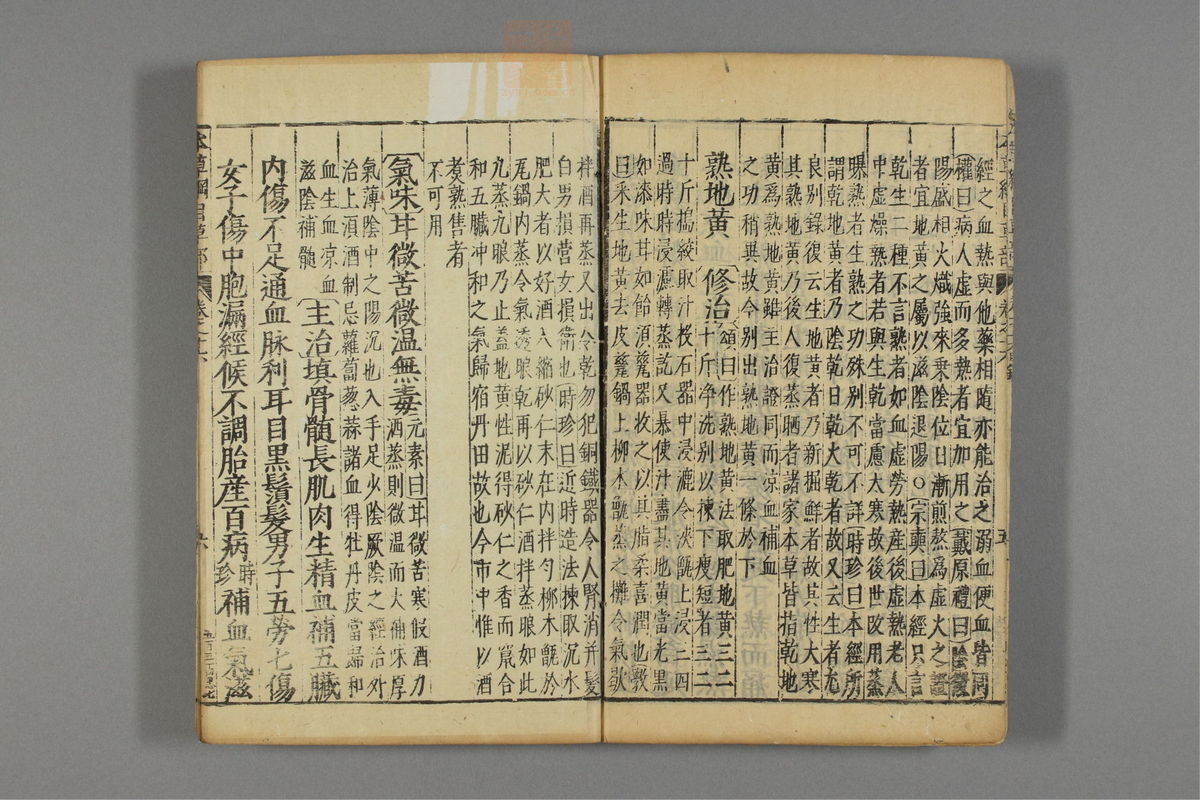 經之血熱與他藥相隨亦能治之溺血便血皆同
權曰病人虛而多熱者宜加用之戴原禮曰陰微
陽盛相火熾強來乘陰位日漸煎熬為虛火之證
者宜地黃之屬以滋陰退陽○宗奭曰本經只言
乾生二種不言熟者如血虛勞熱產後虛熱老人
中虛燥熱者若與生乾當慮太寒故後世改用蒸
曝熟者生熟之功殊別不可不詳時珍曰本經所
謂乾地黃者乃陰乾日乾火乾者故又云生者尤
良別錄復云生地黃者乃新掘鮮者故其性大寒
其熟地黃乃後人復蒸晒者諸家本草皆指乾地
黃爲熟地黃雖主治證同而凉血補血
之功稍異故今別出熟地黃一條於下
熟地黃 修治頌曰作熟地黃法取肥地黃三二
十斤淨洗別以揀下瘦短者三二
十斤搗絞取汁投石器中浸漉令浹甑上浸三四
過時時浸濾轉蒸訖又暴使汁盡其地黃當光黑
如漆味甘如飴須甆器收之以其脂柔喜潤也斆
曰采生地黃去皮甆鍋上柳木甑蒸之攤令氣歇
拌酒再蒸又出令乾勿犯銅鐵器令人腎消并髮
白男損營女損衛也時珍曰近時造法揀取沉水
肥大者以好酒入縮砂仁末在內拌勻柳木甑於
瓦鍋內蒸令氣透晾乾再以砂仁酒拌蒸晾如此
九蒸九晾乃止蓋地黃性泥得砂仁之香而竄合
和五臟冲和之氣歸宿丹田故也今市中惟以酒
煮熟售者
不可用
氣味甘微苦微溫無毒元素曰甘微苦寒假酒力
洒蒸則微溫而大補味厚
氣薄陰中之陽沉也入手足少陰厥陰之經治外
治上須酒制忌蘿蔔葱蒜諸血得牡丹皮當歸和
血生血凉血
滋陰補髓
主治填骨髓長肌肉生精血補五臟
內傷不足通血脉利耳目黑鬚髮男子五勞七傷
女子傷中胞漏經候不調胎產百病時珍補血氣滋